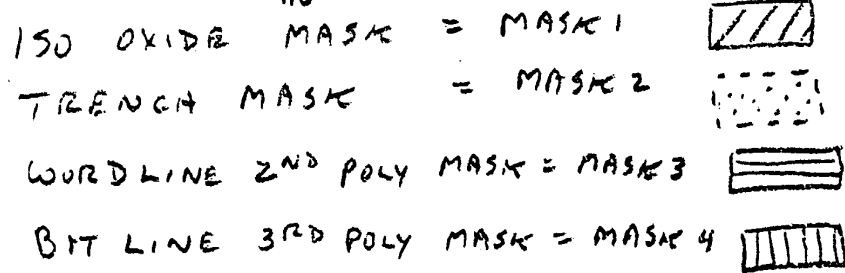 ISO OXIDE MASK = MASK 1
TRENCH MASK = MASK 2
WORDLINE 2ND POLY MASK = MASK 3
BIT LINE 3RD POLY MASK = MASK 4